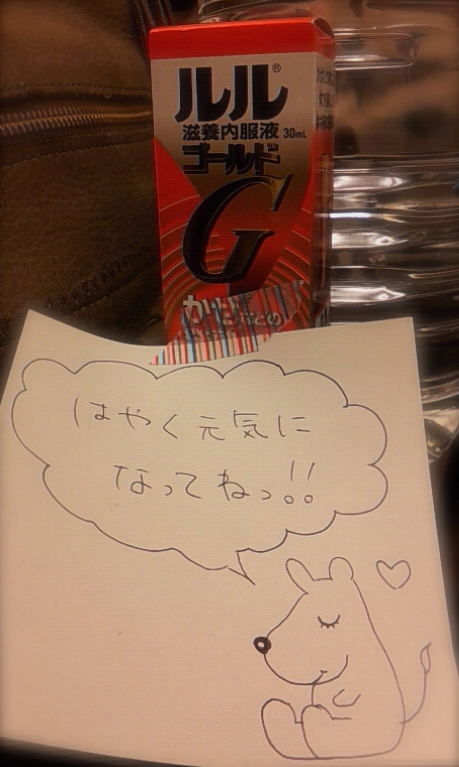 ルル®
滋養内服液 30mL
ゴールド
G
はやく元気に
なってねっ!!